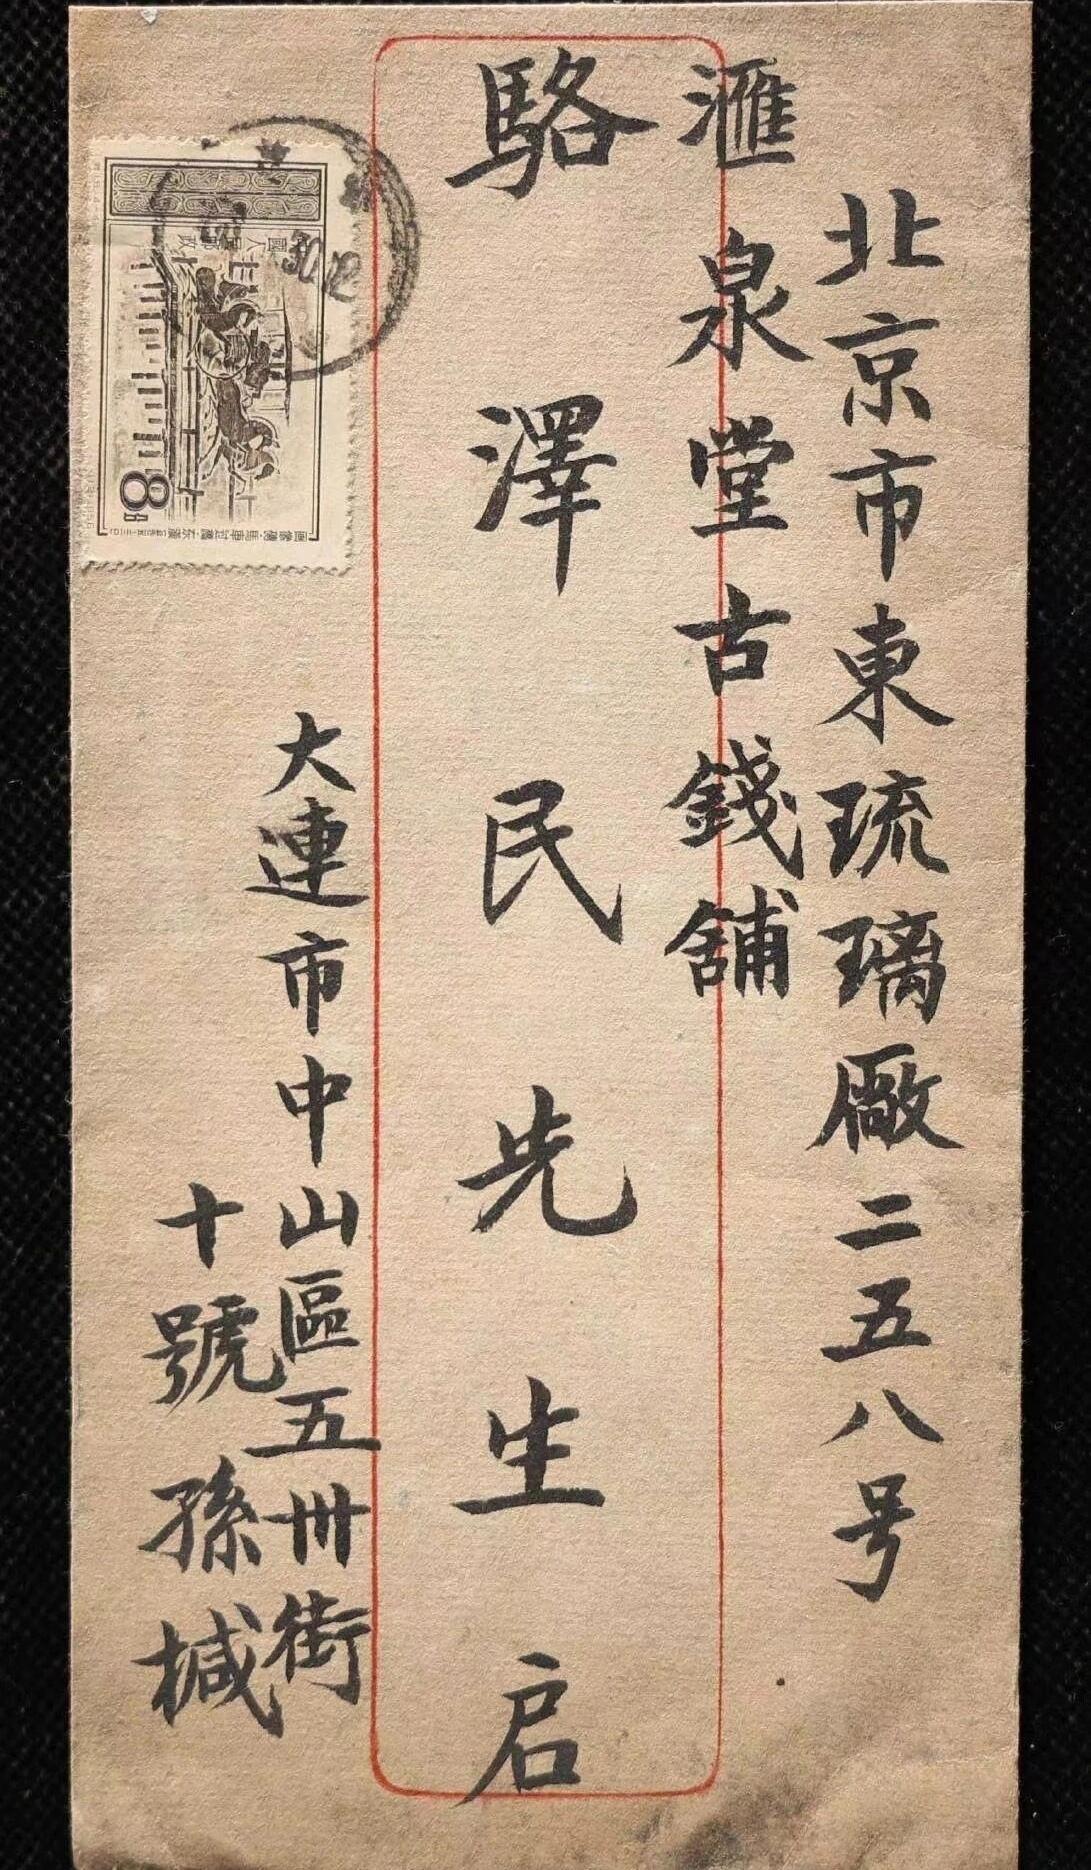 北京市東琉璃廠二五八号
滙泉堂古錢舖
駱澤民先生启
大連市中山區五卅街
十號孫椷
8
30.12